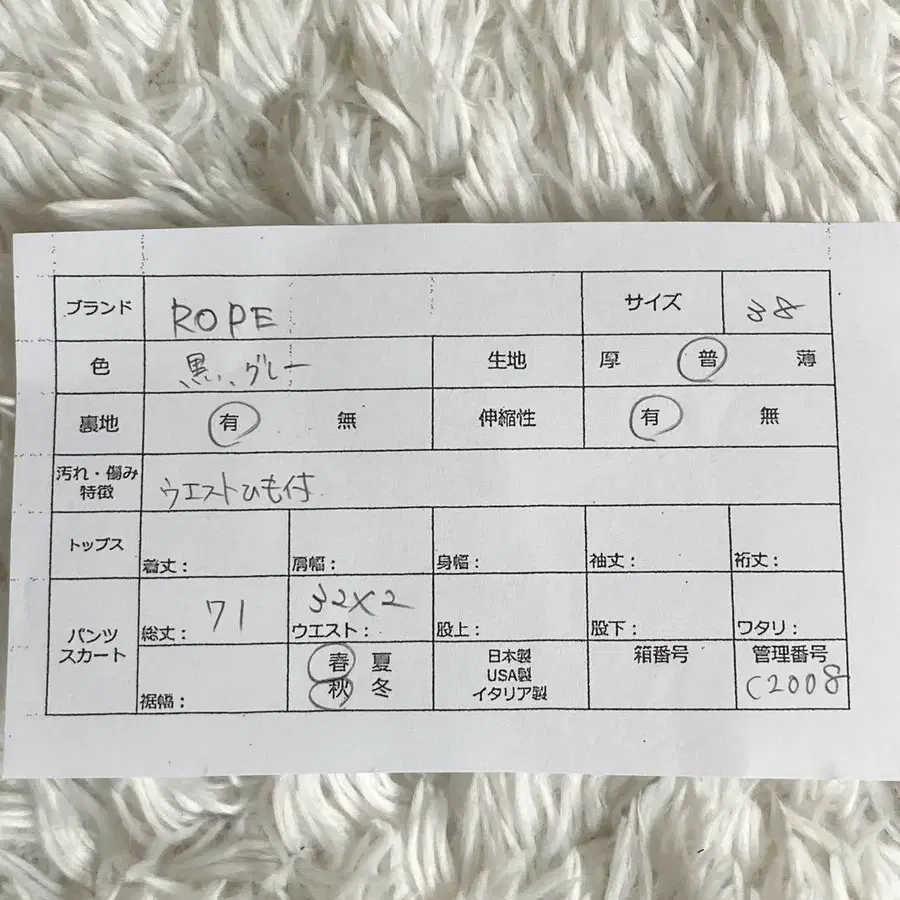 ブランド ROPE サイズ 38
色 黒、グレー 生地 厚 普 薄
裏地 有 無 伸縮性 有 無
汚れ・傷み
特徴 ウエストひも付
トップス 着丈： 肩幅： 身幅： 袖丈： 裄丈：
パンツ
スカート
総丈： 71 ウエスト： 32×2 股上： 股下： ワタリ：
裾幅：
春 夏
秋 冬
日本製
USA製
イタリア製
箱番号
管理番号
C2008